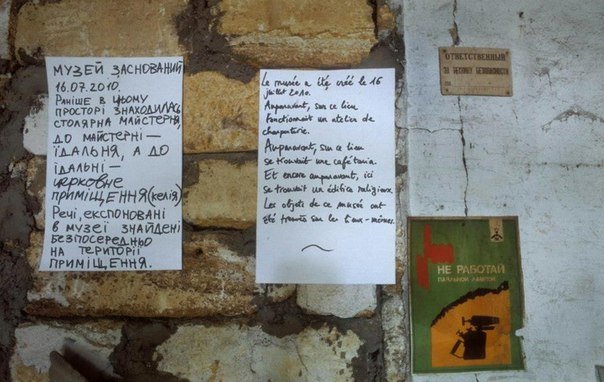 МУЗЕЙ ЗАСНОВАНИЙ
16.07.2010.
РАНІШЕ В ЦЬОМУ
ПРОСТОРІ ЗНАХОДИЛАСЬ
СТОЛЯРНА МАЙСТЕРНЯ,
ДО МАЙСТЕРНІ —
ЇДАЛЬНЯ, А ДО
ЇДАЛЬНІ —
ЦЕРКОВНЕ
ПРИМІЩЕННЯ (КЕЛІЯ)
РЕЧІ, ЕКСПОНОВАНІ
В МУЗЕЇ ЗНАЙДЕНІ
БЕЗПОСЕРЕДНЬО
НА ТЕРИТОРІЇ
ПРИМІЩЕННЯ.
Le musée a été créé le 16
juillet 2010.
Auparavant, sur ce lieu
fonctionnait un atelier de
charpenterie.
Auparavant, sur ce lieu
se trouvait une cafétaria.
Et encore auparavant, ici
se trouvait un édifice religieux.
Les objets de ce musée ont
été trouvés sur les lieux-mêmes.
ОТВЕТСТВЕННЫЙ
ЗА ТЕХНИКУ БЕЗОПАСНОСТИ
НЕ РАБОТАЙ
ПАЯЛЬНОЙ ЛАМПОЙ